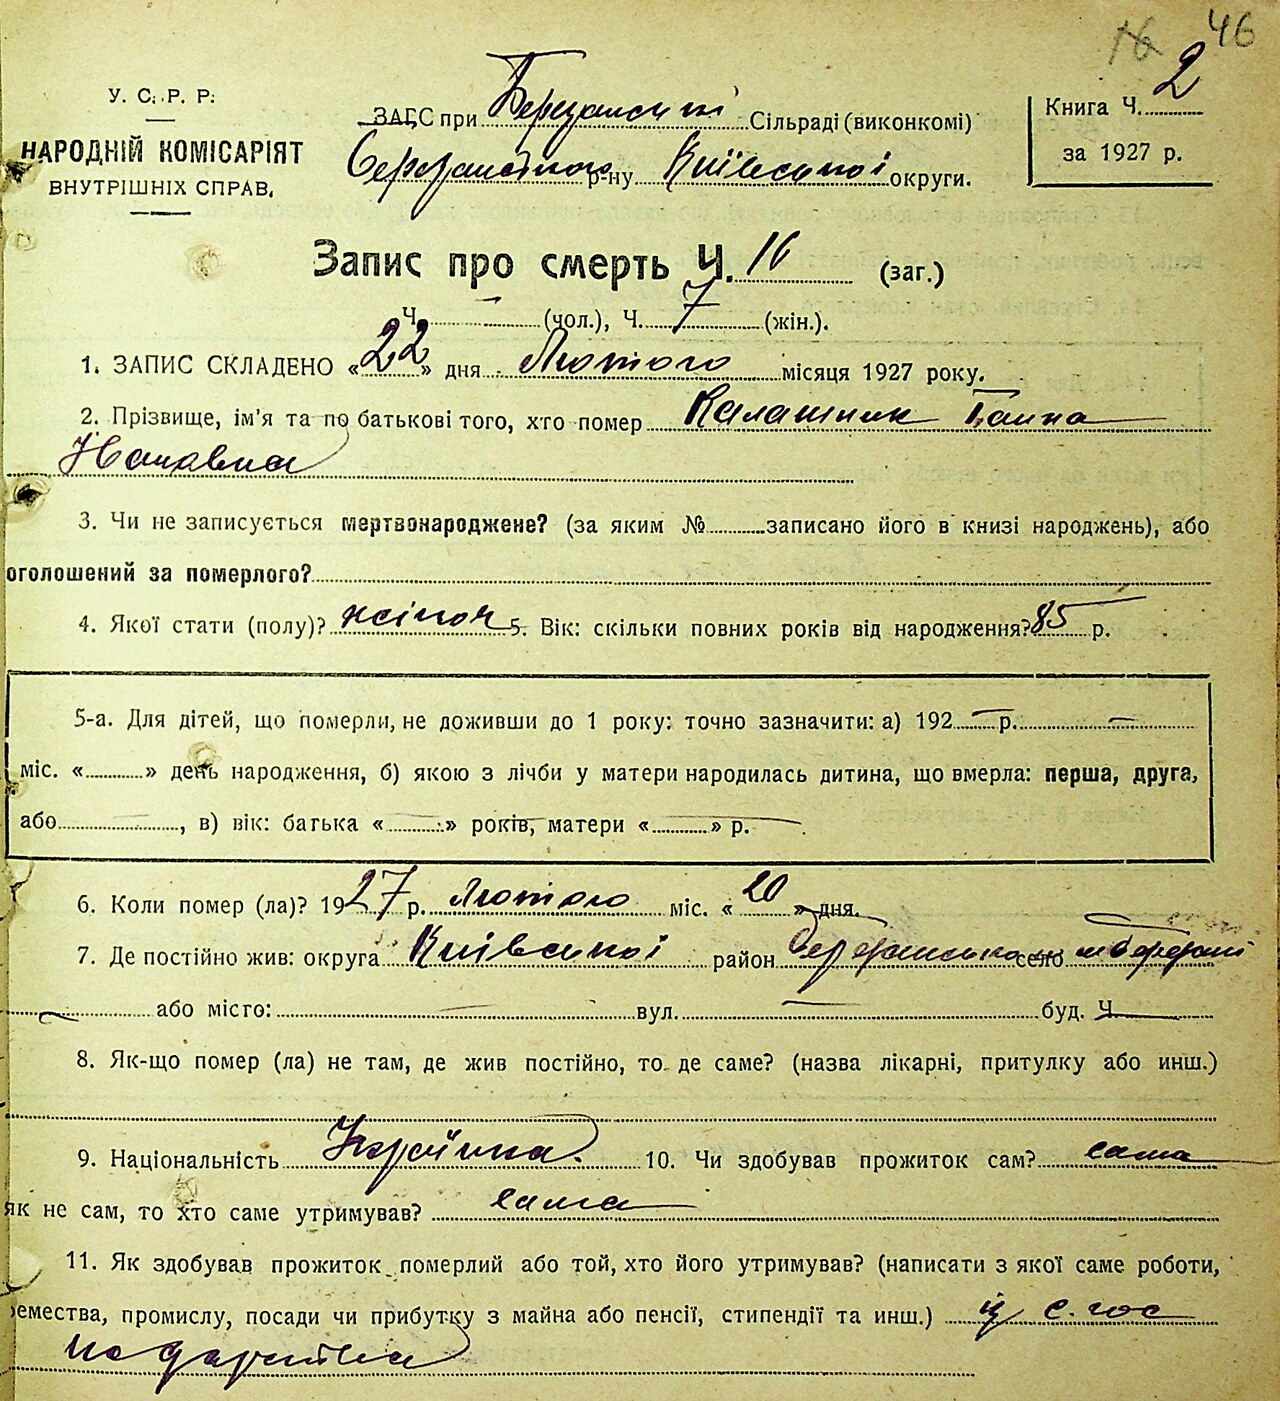 46
16
У. С. Р. Р.
НАРОДНІЙ КОМІСАРІЯТ
ВНУТРІШНІХ СПРАВ.
ЗАГС при Березанській Сільраді (виконкомі)
Березанського р-ну Київської округи.
Книга Ч. 2
за 1927 р.
Запис про смерть Ч. 16 (заг.)
Ч. — (чол.), Ч. 7 (жін.).
1. ЗАПИС СКЛАДЕНО «22» дня Лютого місяця 1927 року.
2. Прізвище, ім'я та по батькові того, хто помер Калашник Ганна
3. Чи не записується мертвонароджене? (за яким № записано його в книзі народжень), або
оголошений за померлого?
4. Якої стати (полу)? жіноч 5. Вік: скільки повних років від народження? 85 р.
5-а. Для дітей, що померли, не доживши до 1 року: точно зазначити: а) 192 — р. —
міс. « » день народження, б) якою з лічби у матери народилась дитина, що вмерла: перша, друга,
або , в) вік: батька « » років, матери « » р.
6. Коли помер (ла)? 1927 р. Лютого міс. «20» дня.
7. Де постійно жив: округа Київської район Березансько село м Березані
або місто: — вул. — буд. Ч.
8. Як-що помер (ла) не там, де жив постійно, то де саме? (назва лікарні, притулку або инш.)
9. Національність Україінка. 10. Чи здобував прожиток сам? сама
як не сам, то хто саме утримував? сама
11. Як здобував прожиток померлий або той, хто його утримував? (написати з якої саме роботи,
ремества, промислу, посади чи прибутку з майна або пенсії, стипендії та инш.) із с. гос
подарства